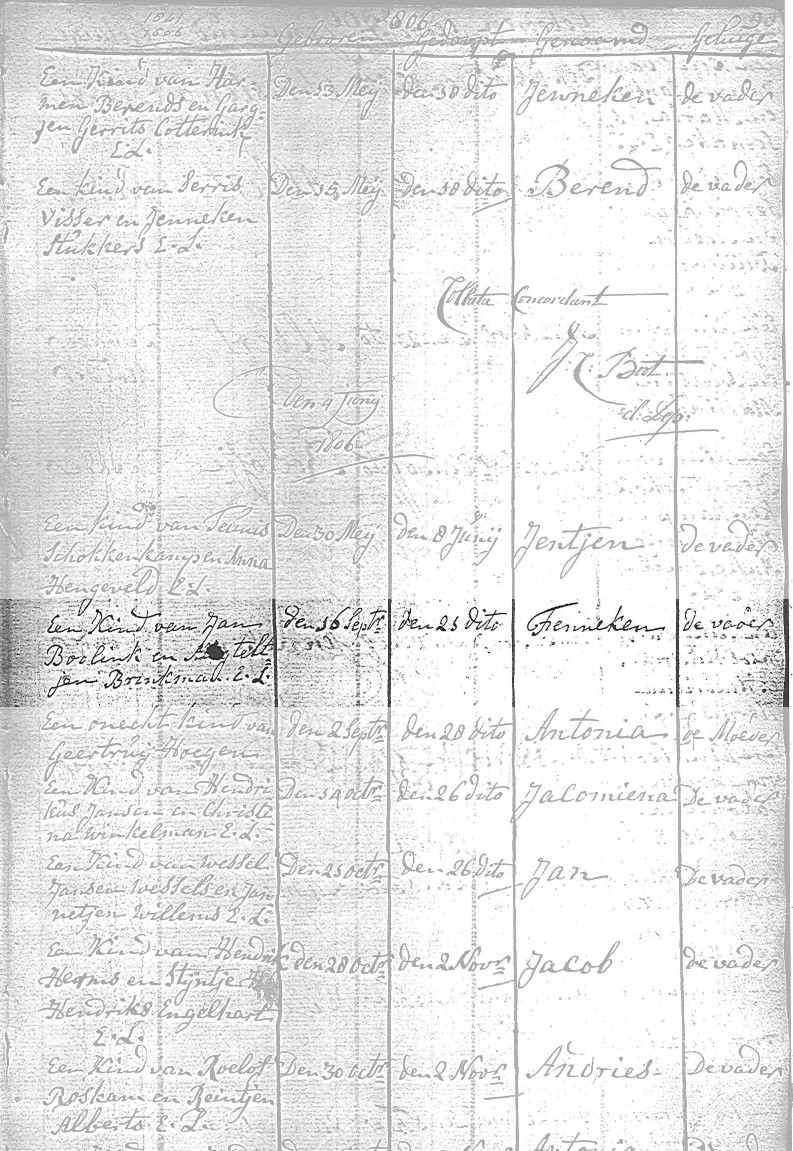 1806
Gebooren Gedoopt Genaamd Getuige
Een Kind van Har- Den 13 Meij den 18 dito Jenneken de vader
men Berends en Garg-
jen Gerrits Cotterink
E.L.
Een kind van Gerris Den 15 Meij Den 18 dito Berend de vader
Visser en Jenneken
Stukkers E.L.
Collata Concordant
J C Boot
den 4 Junij
d. Dep.
1806
Een kind van Teunis Den 30 Meij den 8 Junij Jentjen de vader
Schokkenkamp en Anna
Hengeveld E.L.
Een Kind van Jan den 16 Septr den 25 dito Fenneken de vader
Boolink en
jen Brinkman. E.L.
Een onecht kind van den 2 Septr den 28 dito Antonia de Moeder
Geertruy Hoegen
Een Kind van Hendri Den 14 octr den 26 dito Jacomiena De vader
kus Jansen en Christe
na Winkelman E.L.
Een Kind van Wessel Den 25 octr den 26 dito Jan De vader
Jansen Wessels en Jan
netjen Willems E.L.
Een Kind van Hendrik den 28 octr den 2 Novr Jacob de vader
Herms en Stijntje
Hendriks Engelhart
E.L.
Een Kind van Roelof Den 30 octr den 2 Novr Andries De vader
Roskam en Reintjen
Alberts E.L.
Antonia